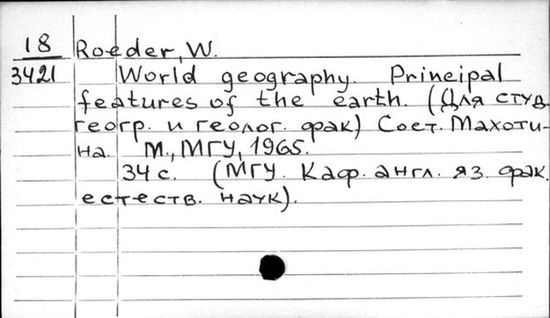 18 Roeder, W.
3421 World geography. Principal
features of the earth. (Для студ.
геогр. и геолог. фак) Сост. Махоти-
на. М., МГУ, 1965.
34 с. (МГУ. Каф. англ. яз. фак.
естеств. наук).